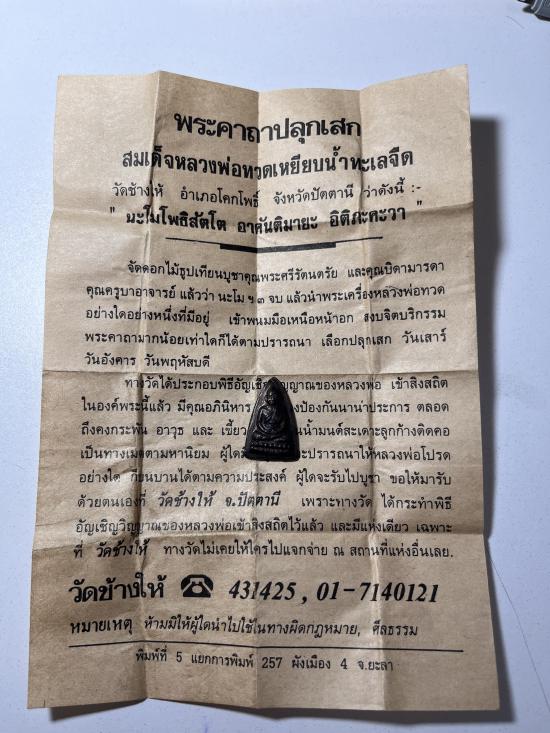 พระคาถาปลุกเสก
สมเด็จหลวงพ่อทวดเหยียบน้ำทะเลจืด
วัดช้างให้ อำเภอโคกโพธิ์ จังหวัดปัตตานี ว่าดังนี้ :-
" นะโมโพธิสัตโต อาคันติมายะ อิติภะคะวา "
จัดดอกไม้ธูปเทียนบูชาคุณพระศรีรัตนตรัย และคุณบิดามารดา
คุณครูบาอาจารย์ แล้วว่า นะโม ฯ ๓ จบ แล้วนำพระเครื่องหลวงพ่อทวด
อย่างใดอย่างหนึ่งที่มีอยู่ เข้าพนมมือเหนือหน้าอก สงบจิตบริกรรม
พระคาถามากน้อยเท่าใดก็ได้ตามปรารถนา เลือกปลุกเสก วันเสาร์
วันอังคาร วันพฤหัสบดี
ทางวัดได้ประกอบพิธีอัญเชิญวิญญาณของหลวงพ่อ เข้าสิงสถิต
ในองค์พระนี้แล้ว มีคุณอภินิหาร ป้องกันนานาประการ ตลอด
ถึงคงกระพัน อาวุธ และ เขี้ยว น้ำมนต์สะเดาะลูกก้างติดคอ
เป็นทางเมตตามหานิยม ผู้ใด ปรารถนาให้หลวงพ่อโปรด
อย่างใด ก็บนบานได้ตามความประสงค์ ผู้ใดจะรับไปบูชา ขอให้มารับ
ด้วยตนเองที่ วัดช้างให้ จ.ปัตตานี เพราะทางวัด ได้กระทำพิธี
อัญเชิญวิญญาณของหลวงพ่อเข้าสิงสถิตไว้แล้ว และมีแห่งเดียว เฉพาะ
ที่ วัดช้างให้ ทางวัดไม่เคยให้ใครไปแจกจ่าย ณ สถานที่แห่งอื่นเลย.
วัดช้างให้ ☎ 431425 , 01-7140121
หมายเหตุ ห้ามมิให้ผู้ใดนำไปใช้ในทางผิดกฎหมาย, ศีลธรรม
พิมพ์ที่ 5 แยกการพิมพ์ 257 ผังเมือง 4 จ.ยะลา